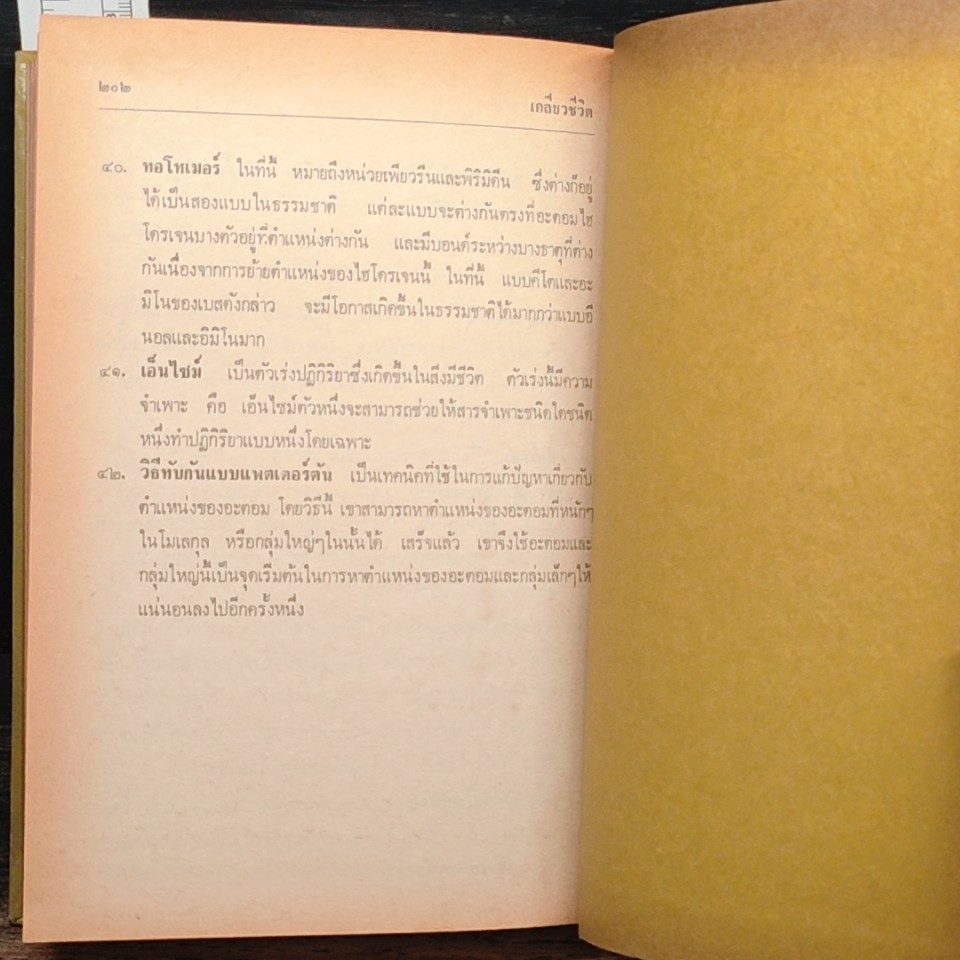 ๒๐๒
เกลียวชีวิต
๔๐. ทอโทเมอร์ ในที่นี้ หมายถึงหน่วยเพียวรีนและพิริมิดีน ซึ่งต่างก็อยู่
ได้เป็นสองแบบในธรรมชาติ แต่ละแบบจะต่างกันตรงที่อะตอมไฮ
โดรเจนบางตัวอยู่ที่ตำแหน่งต่างกัน และมีบอนด์ระหว่างบางธาตุที่ต่าง
กันเนื่องจากการย้ายตำแหน่งของไฮโดรเจนนี้ ในที่นี้ แบบคีโตและอะ
มิโนของเบสดังกล่าว จะมีโอกาสเกิดขึ้นในธรรมชาติได้มากกว่าแบบอี
นอลและอิมิโนมาก
๔๑. เอ็นไซม์ เป็นตัวเร่งปฏิกิริยาซึ่งเกิดขึ้นในสิ่งมีชีวิต ตัวเร่งนี้มีความ
จำเพาะ คือ เอ็นไซม์ตัวหนึ่งจะสามารถช่วยให้สารจำเพาะชนิดใดชนิด
หนึ่งทำปฏิกิริยาแบบหนึ่งโดยเฉพาะ
๔๒. วิธีทับกันแบบแพตเตอร์ตัน เป็นเทคนิคที่ใช้ในการแก้ปัญหาเกี่ยวกับ
ตำแหน่งของอะตอม โดยวิธีนี้ เขาสามารถหาตำแหน่งของอะตอมที่หนักๆ
ในโมเลกุล หรือกลุ่มใหญ่ๆในนั้นได้ เสร็จแล้ว เขาจึงใช้อะตอมและ
กลุ่มใหญ่นี้เป็นจุดเริ่มต้นในการหาตำแหน่งของอะตอมและกลุ่มเล็กๆให้
แน่นอนลงไปอีกครั้งหนึ่ง